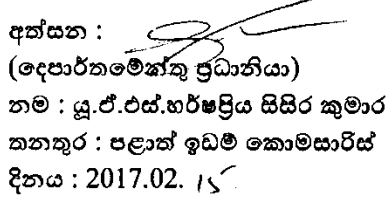 අත්සන :
(දෙපාර්තමේන්තු ප්‍රධානියා)
නම : යූ.ඒ.එස්.හර්ෂප්‍රිය සිසිර කුමාර
තනතුර : පළාත් ඉඩම් කොමසාරිස්
දිනය : 2017.02. 15